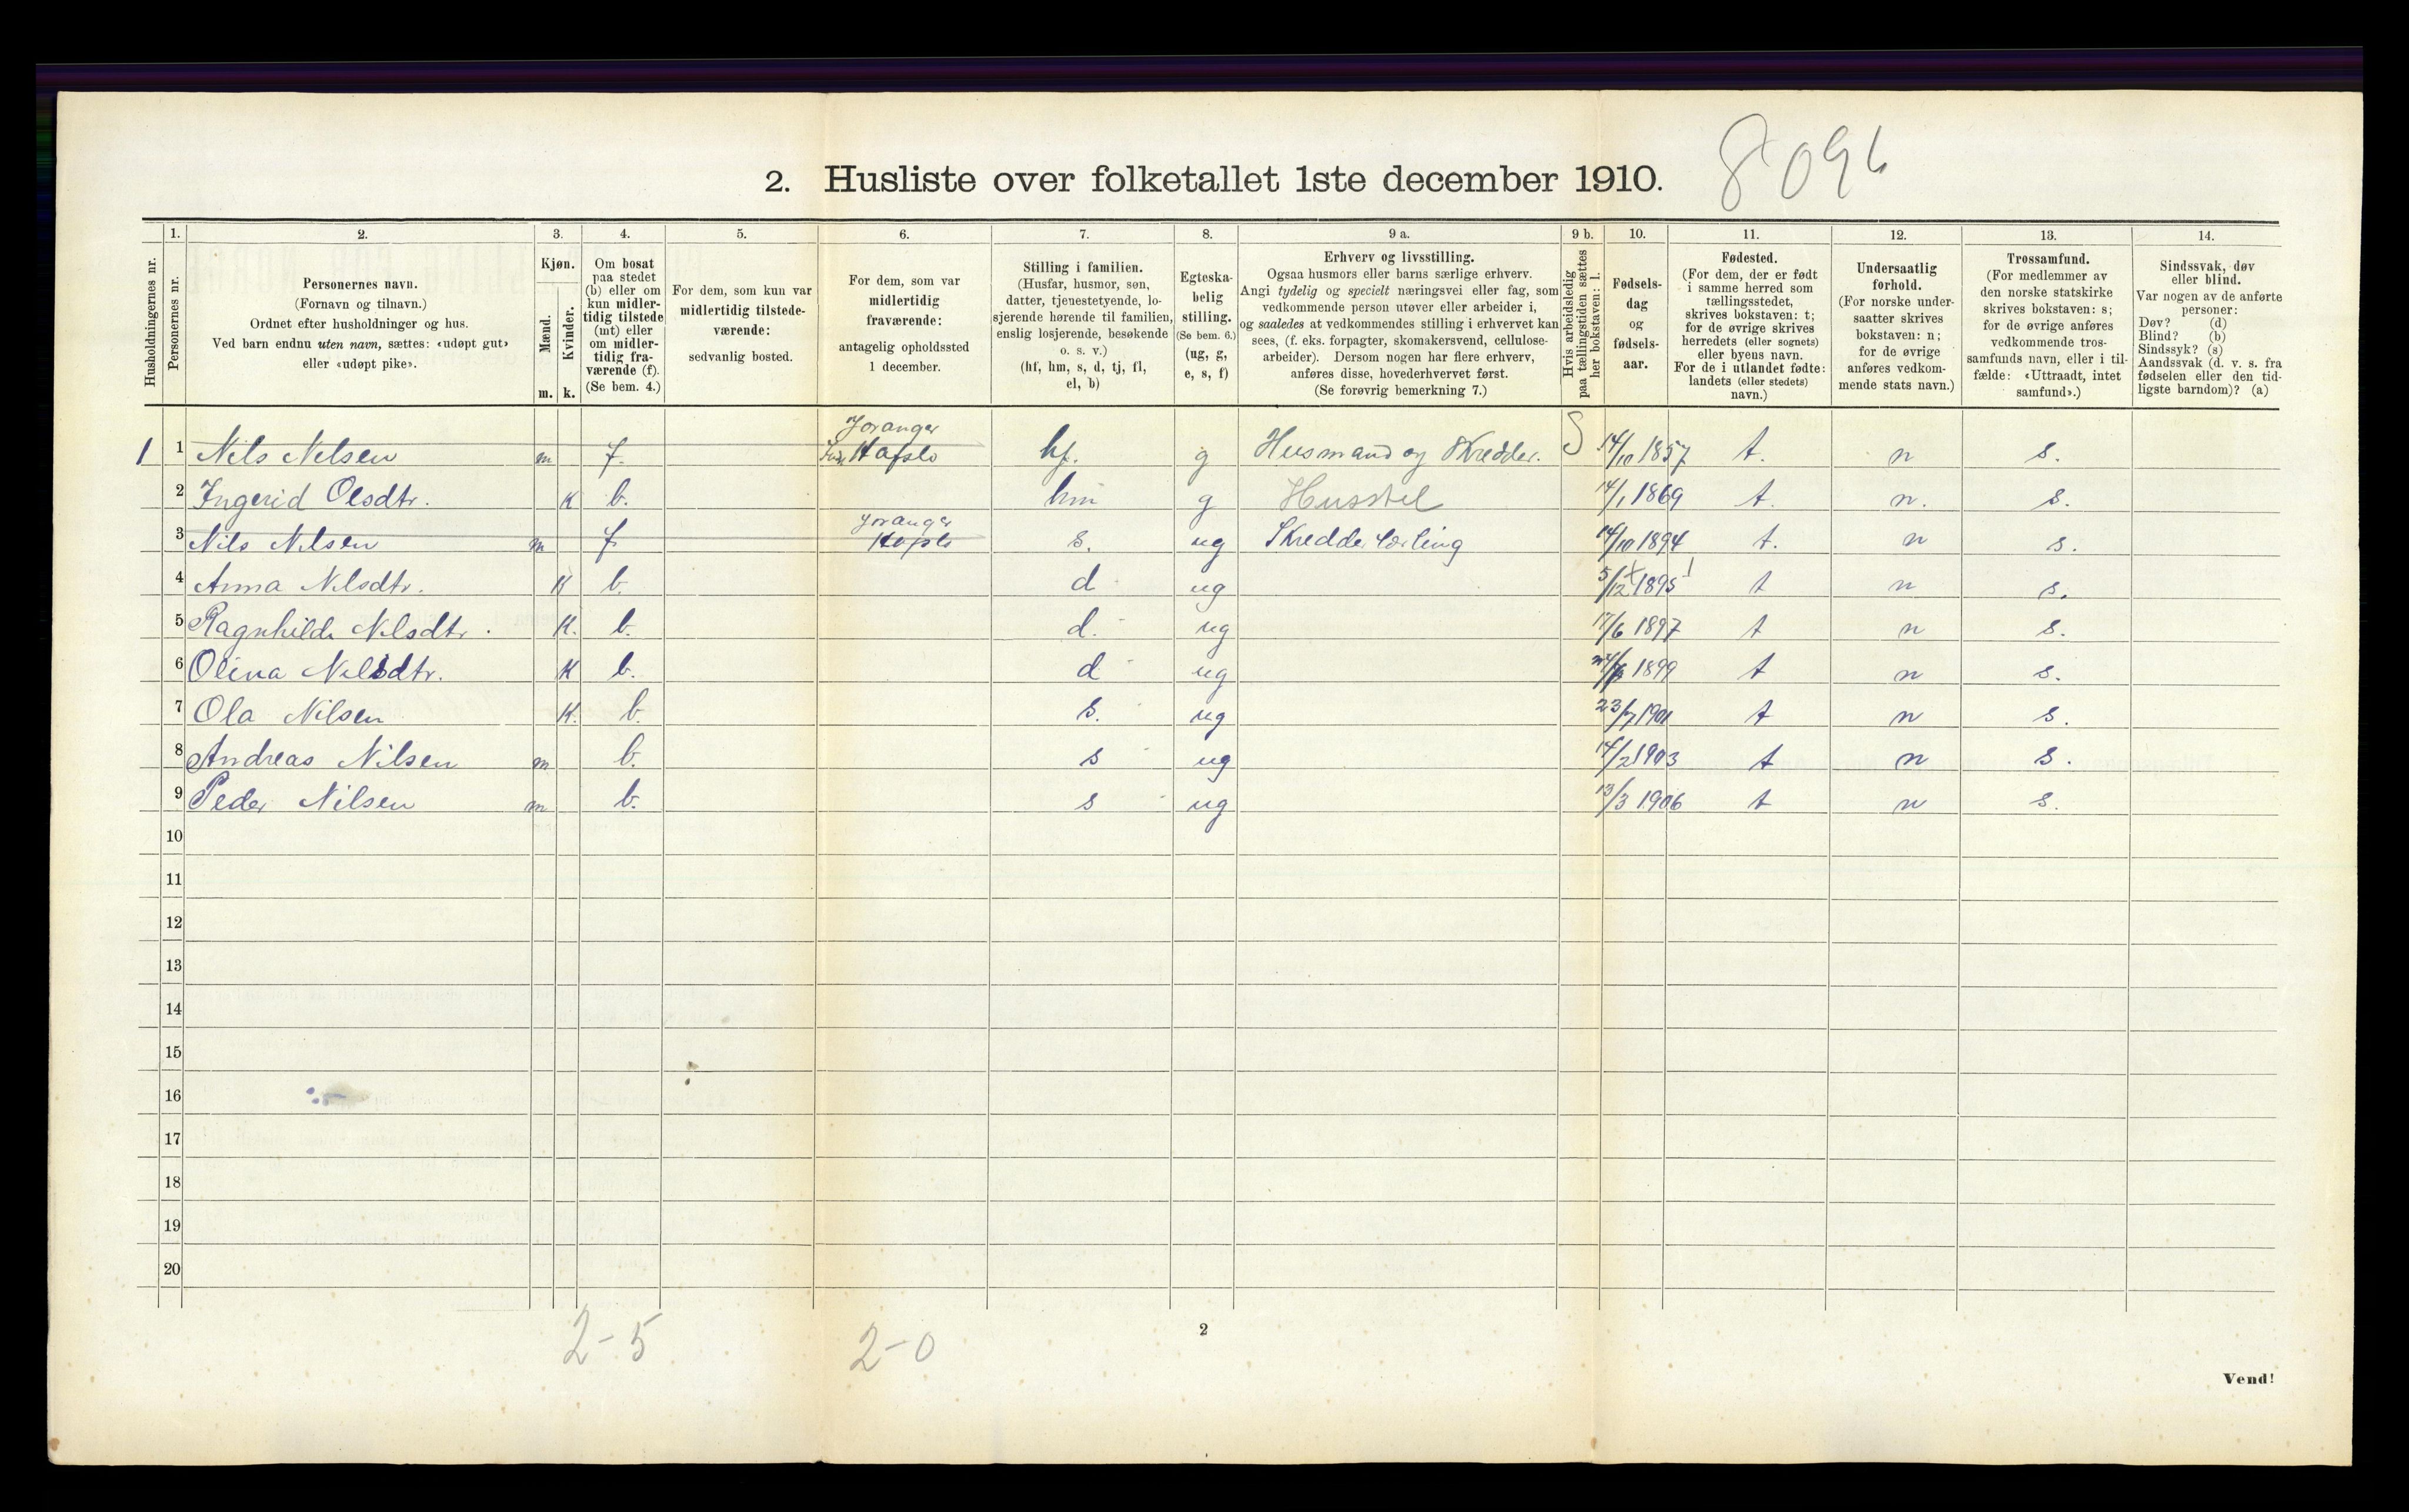 2. Husliste over folketallet 1ste december 1910. 8096
1. 2. 3. 4. 5. 6. 7. 8. 9 a. 9 b. 10. 11. 12. 13. 14.
Husholdningernes nr.
Personernes nr.
Personernes navn.
(Fornavn og tilnavn.)
Ordnet efter husholdninger og hus.
Ved barn endnu uten navn, sættes: «udøpt gut»
eller «udøpt pike».
Kjøn.
Mænd.
Kvinder.
m. k.
Om bosat
paa stedet
(b) eller om
kun midler-
tidig tilstede
(mt) eller
om midler-
tidig fra-
værende (f).
(Se bem. 4.)
For dem, som kun var
midlertidig tilstede-
værende:
sedvanlig bosted.
For dem, som var
midlertidig
fraværende:
antagelig opholdssted
1 december.
Stilling i familien.
(Husfar, husmor, søn,
datter, tjenestetyende, lo-
sjerende hørende til familien,
enslig losjerende, besøkende
o. s. v.)
(hf, hm, s, d, tj, fl,
el, b)
Egteska-
belig
stilling.
(Se bem. 6.)
(ug, g,
e, s, f)
Erhverv og livsstilling.
Ogsaa husmors eller barns særlige erhverv.
Angi tydelig og specielt næringsvei eller fag, som
vedkommende person utøver eller arbeider i,
og saaledes at vedkommendes stilling i erhvervet kan
sees, (f. eks. forpagter, skomakersvend, cellulose-
arbeider). Dersom nogen har flere erhverv,
anføres disse, hovederhvervet først.
(Se forøvrig bemerkning 7.)
Hvis arbeidsledig
paa tællingstiden sættes
her bokstaven: l.
Fødsels-
dag
og
fødsels-
aar.
Fødested.
(For dem, der er født
i samme herred som
tællingsstedet,
skrives bokstaven: t;
for de øvrige skrives
herredets (eller sognets)
eller byens navn.
For de i utlandet fødte:
landets (eller stedets)
navn.)
Undersaatlig
forhold.
(For norske under-
saatter skrives
bokstaven: n;
for de øvrige
anføres vedkom-
mende stats navn.)
Trossamfund.
(For medlemmer av
den norske statskirke
skrives bokstaven: s;
for de øvrige anføres
vedkommende tros-
samfunds navn, eller i til-
fælde: «Uttraadt, intet
samfund».)
Sindssvak, døv
eller blind.
Var nogen av de anførte
personer:
Døv? (d)
Blind? (b)
Sindssyk? (s)
Aandssvak (d. v. s. fra
fødselen eller den tid-
ligste barndom)? (a)
Joranger
1 1 Nils Nilsen m f. Hafslo hf. g Husmand og Skredder. S 14/10 1857 t. n s.
2 Ingerid Olsdtr. K b. hm g Husstel 14/1 1869 t. n. s.
Joranger
3 Nils Nilsen m f Hafslo s. ug Skredderlærling 14/10 1894 t. n s.
4 Anna Nilsdtr. K b. d ug 5/12 1895 t n s.
5 Ragnhilde Nilsdtr. K. b. d. ug 17/6 1897 t n s.
6 Olina Nilsdtr. K b. d ug 1899 t n s.
7 Ola Nilsen K. b. s. ug 23/7 1901 t n s.
8 Andreas Nilsen m b. s ug 14/2 1903 t n s.
9 Peder Nilsen m b. s ug 13/3 1906 t n s.
10
11
12
13
14
15
16
17
18
19
20
2-5 2-0 2
Vend!